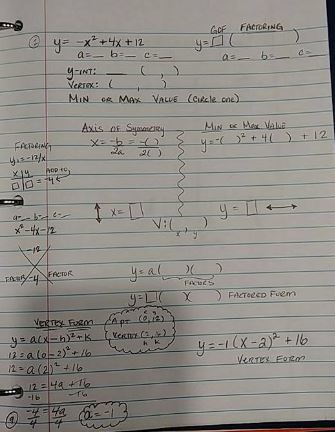 ② y = -x² + 4x + 12
GCF FACTORING
y = □ ( )
a=__ b=__ c=__
a=__ b=__ c=__
y-INT: ___ ( , )
VERTEX: ( , )
MIN OR MAX VALUE (CIRCLE ONE)
Axis of Symmetry
x = -b/2a = -( )/2( )
MIN OR MAX VALUE
y = -( )² + 4( ) + 12
FACTORING
y₁ = -12/x
x | y ADD TO
□ □ = -4
a=__ b=__ c=__
x² - 4x - 12
-12
FACTOR -4 FACTOR
x = □
y = □
V: ( x , y )
y = a( )( )
FACTORS
y = □( X ) FACTORED FORM
VERTEX FORM
y = a(x-h)² + k
12 = a(0-2)² + 16
12 = a(2)² + 16
12 = 4a + 16
-16 -16
-4/4 = 4a/4
a = -1
A pt (0, 12)
VERTEX: ( , )
h k
y = -1(x-2)² + 16
VERTEX FORM